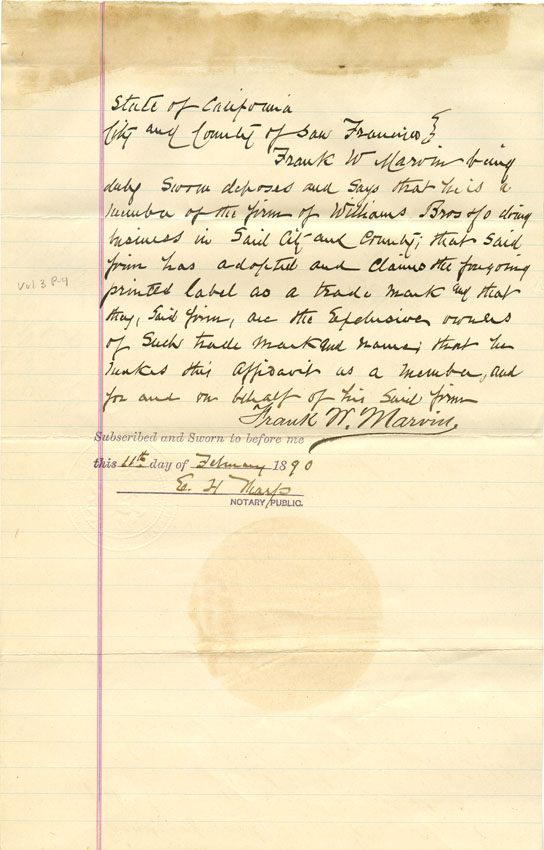 State of California
City and County of San Francisco }
Frank W Marvin being
duly Sworn deposes and Says that he is a
member of the firm of Williams Bros & Co doing
business in Said City and County; that Said
firm has adopted and Claims the forgoing
printed label as a trade mark and that
they, Said firm, are the Exclusive owners
of Such trade Mark and name; that he
makes this Affidavit as a member, and
for and on behalf of his Said firm
Frank W. Marvin.
Subscribed and Sworn to before me
this 11th day of February 1890
E. H Tharp
NOTARY PUBLIC.
Vol 3 P-4